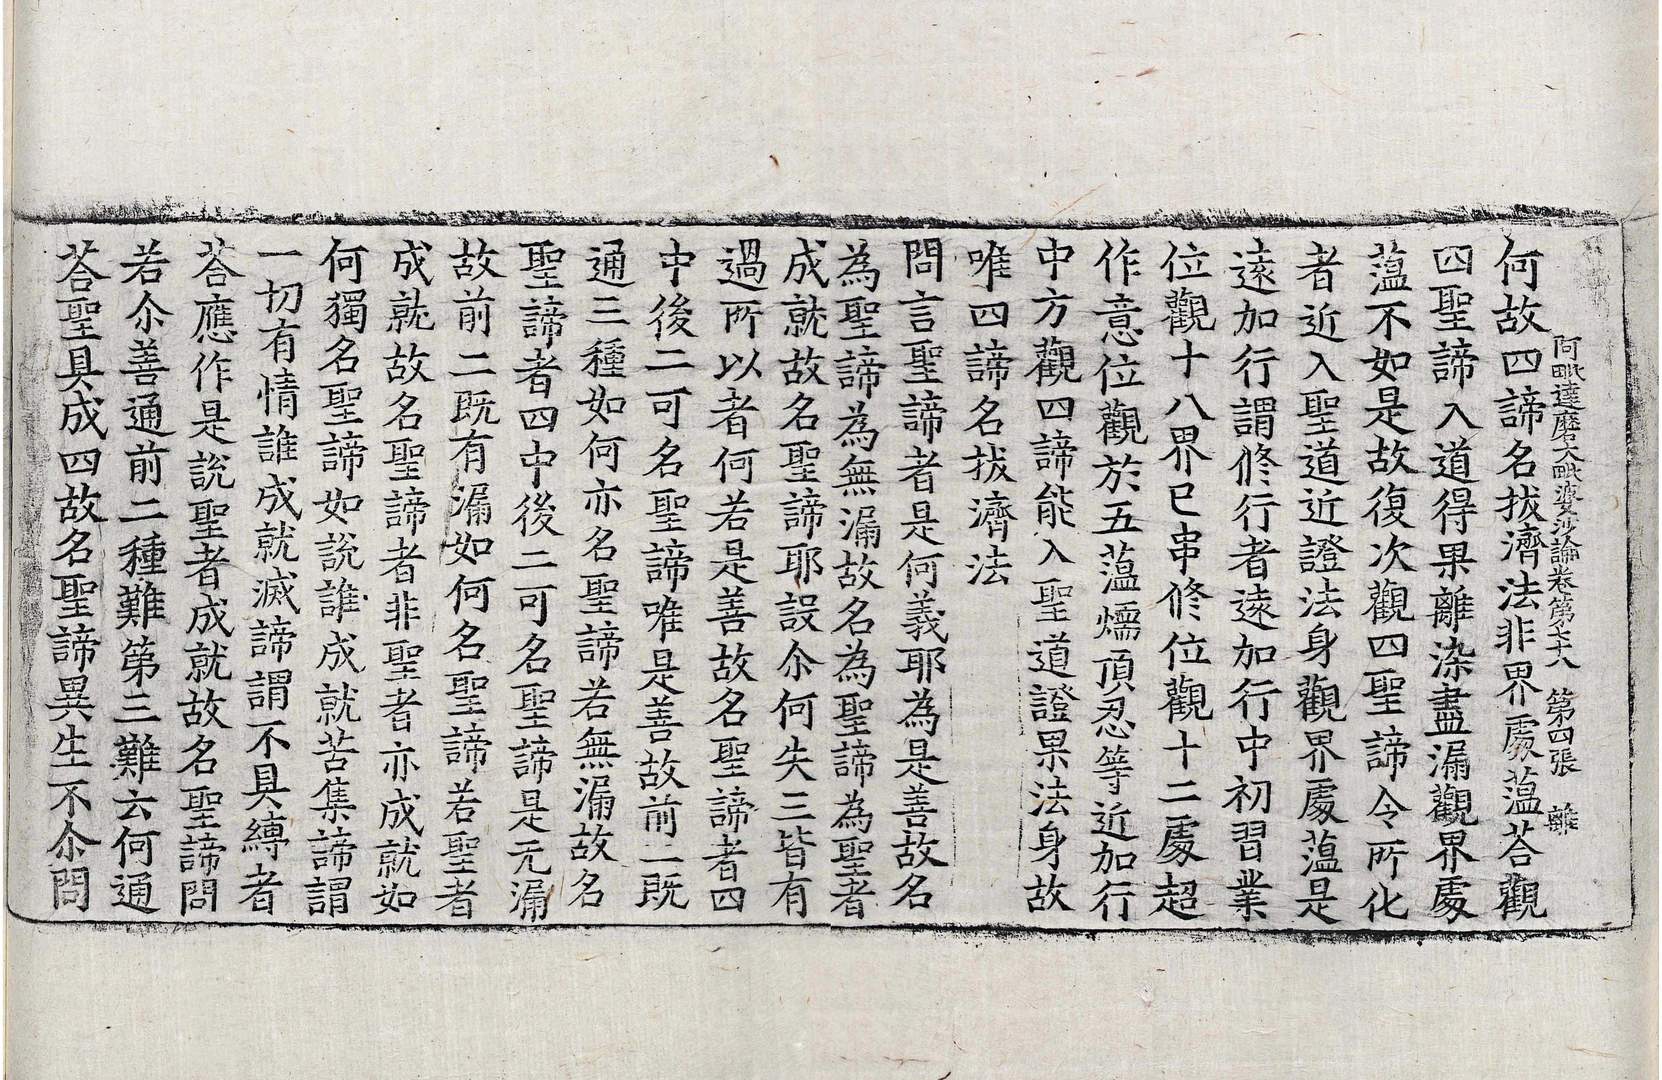 阿毗達磨大毗婆沙論卷第七十八　第四張　離
何故四諦名拔濟法非界處蕰荅觀
四聖諦入道得果離染盡漏觀界處
蕰不如是故復次觀四聖諦令所化
者近入聖道近證法身觀界處蕰是
遠加行謂修行者遠加行中初習業
位觀十八界已串修位觀十二處超
作意位觀於五蕰燸頂忍等近加行
中方觀四諦能入聖道證果法身故
唯四諦名拔濟法
問言聖諦者是何義耶為是善故名
為聖諦為無漏故名為聖諦為聖者
成就故名聖諦耶設尒何失三皆有
過所以者何若是善故名聖諦者四
中後二可名聖諦唯是善故前二既
通三種如何亦名聖諦若無漏故名
聖諦者四中後二可名聖諦是无漏
故前二既有漏如何名聖諦若聖者
成就故名聖諦者非聖者亦成就如
何獨名聖諦如說誰成就苦集諦謂
一切有情誰成就滅諦謂不具縛者
荅應作是說聖者成就故名聖諦問
若尒善通前二種難第三難云何通
荅聖具成四故名聖諦異生不尒問